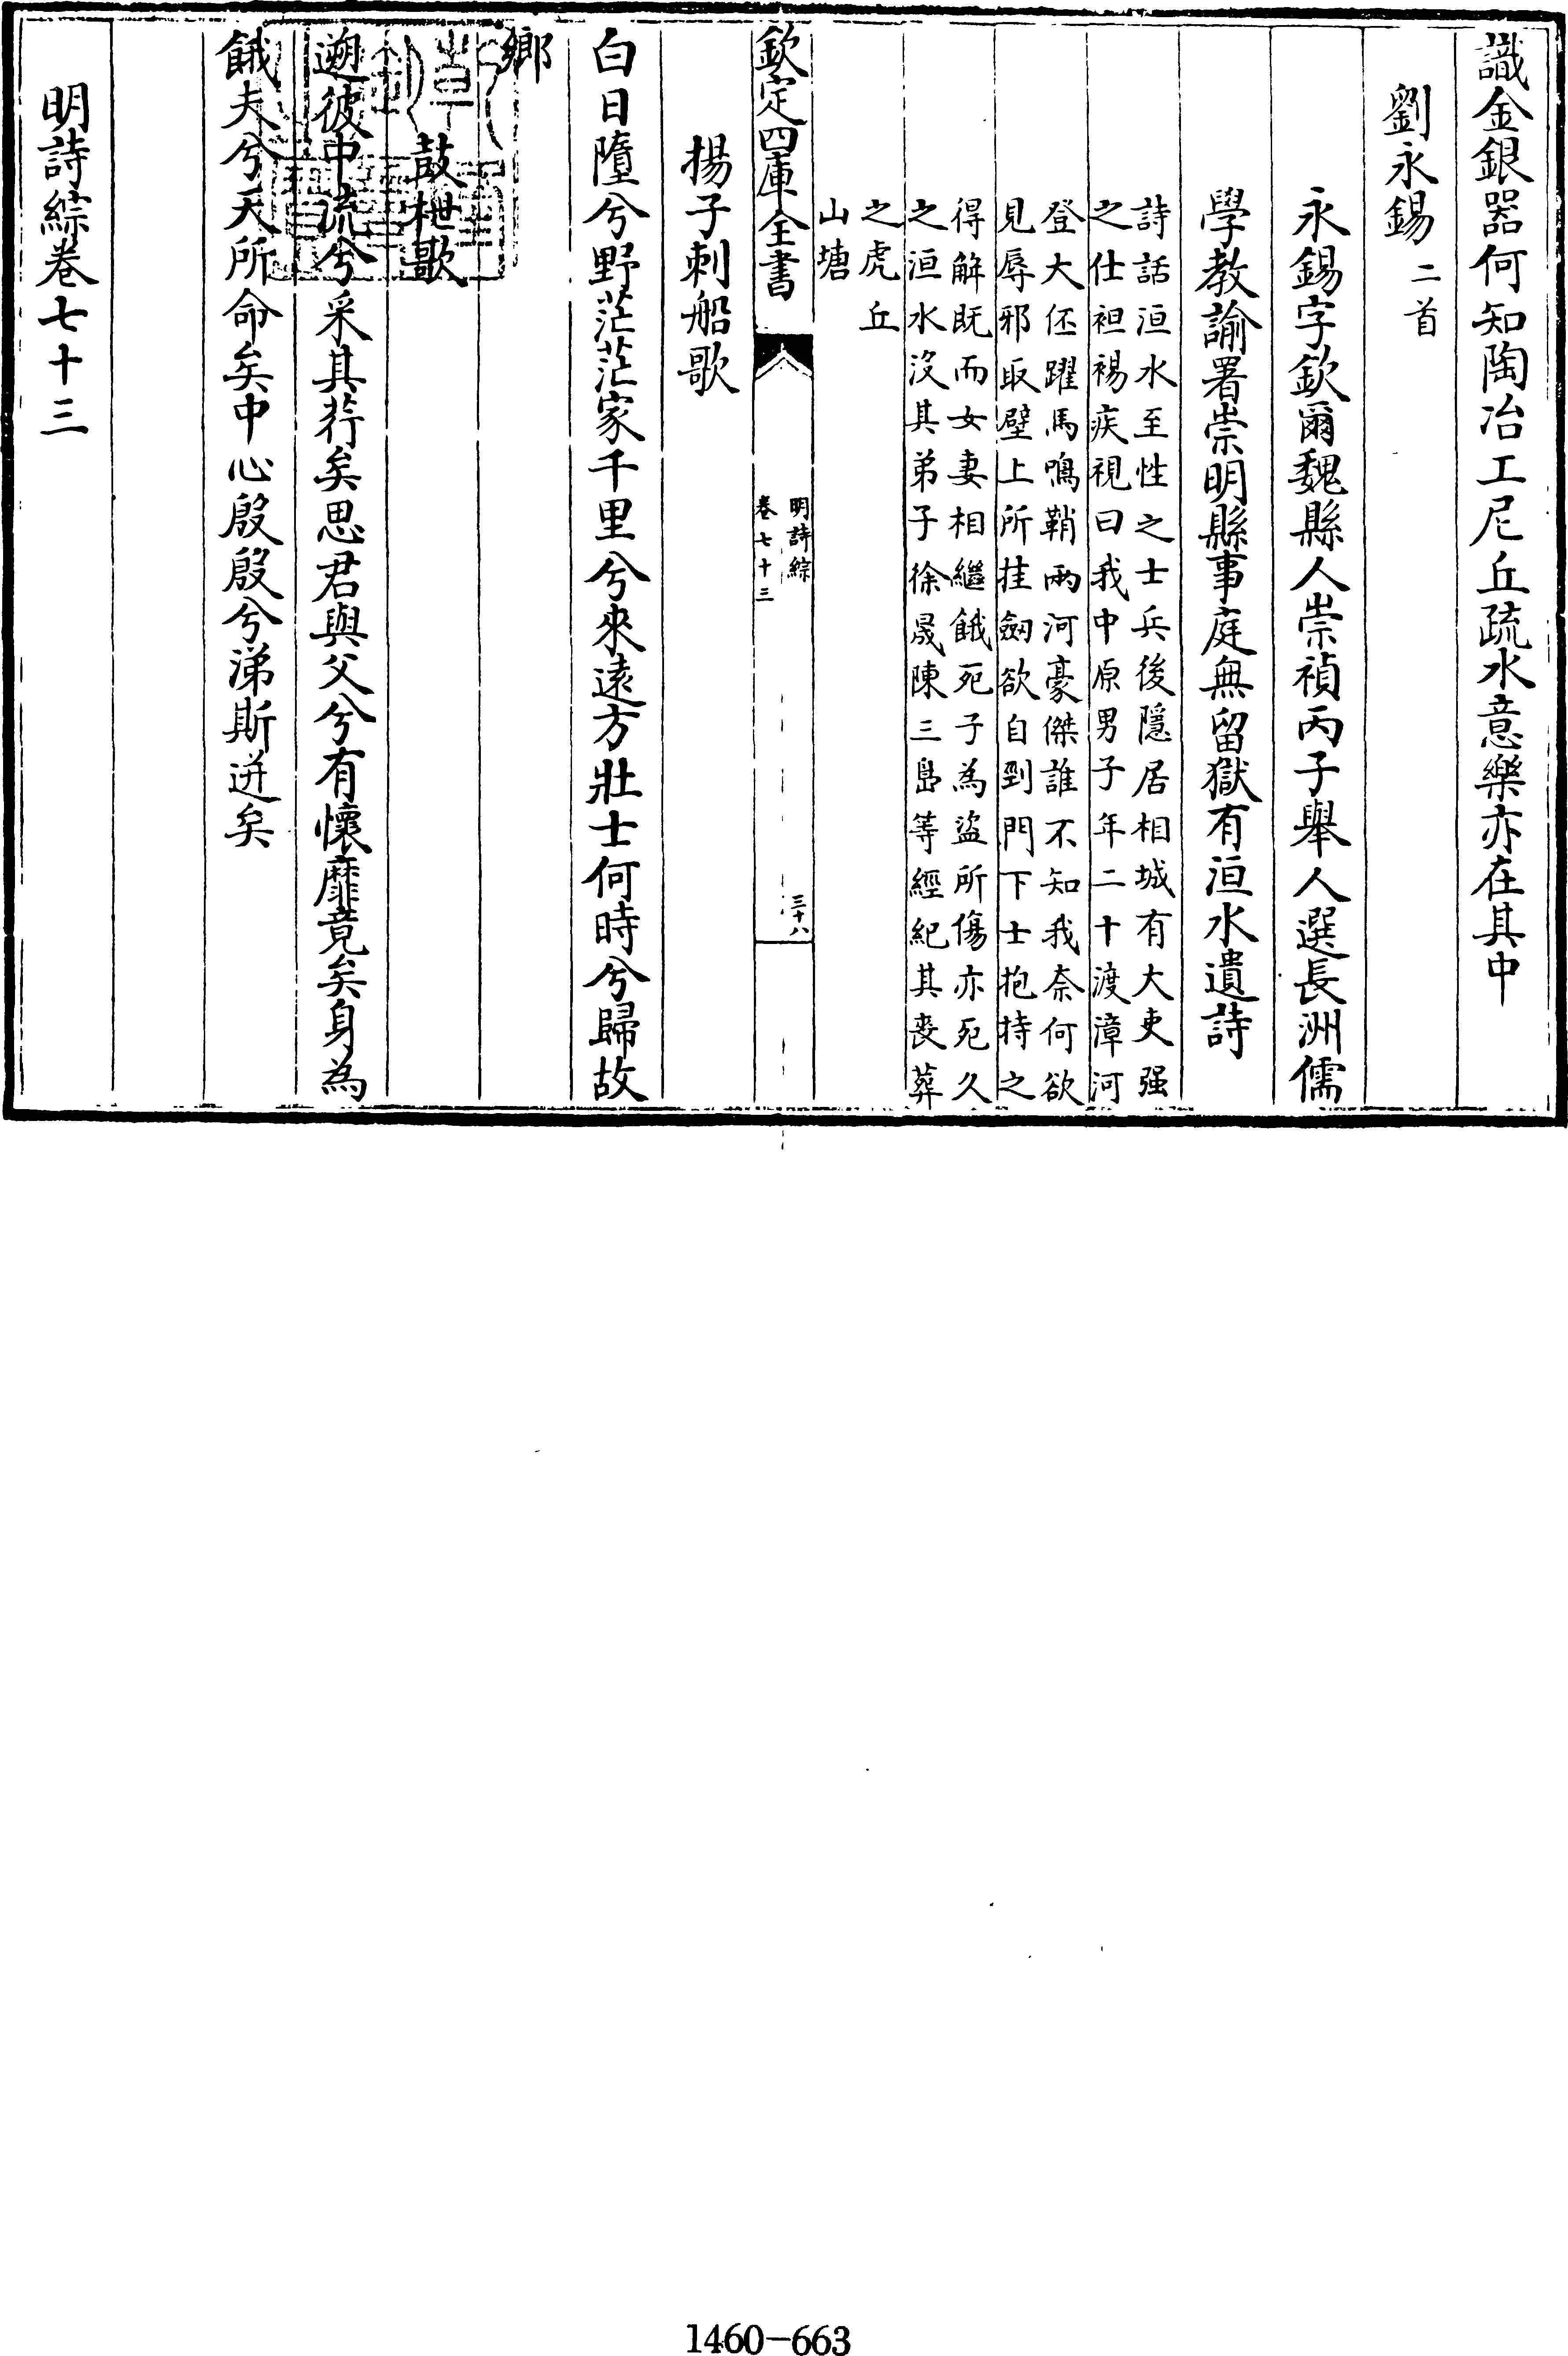 識金銀器何知陶冶工尼丘疏水意樂亦在其中
劉永錫二首
永錫字欽爾魏縣人崇禎丙子舉人選長洲儒
學教諭署崇明縣事庭無留獄有洹水遺詩
詩話洹水至性之士兵後隱居相城有大吏强
之仕袒裼疾視曰我中原男子年二十渡漳河
登大伾躍馬鳴鞘兩河豪傑誰不知我奈何欲
見辱邪取壁上所挂劒欲自剄門下士抱持之
得解既而女妻相繼餓死子為盜所傷亦死久
之洹水沒其弟子徐晟陳三島等經紀其喪葬
之虎丘
山塘
欽定四庫全書
明詩綜
卷七十三
三十八
揚子刺船歌
白日墮兮野茫茫家千里兮來遠方壯士何時兮歸故
鄉
鼓枻歌
遡彼中流兮采其荇矣思君與父兮有懷靡竟矣身為
餓夫兮天所命矣中心殷殷兮涕斯迸矣
明詩綜卷七十三
1460-663